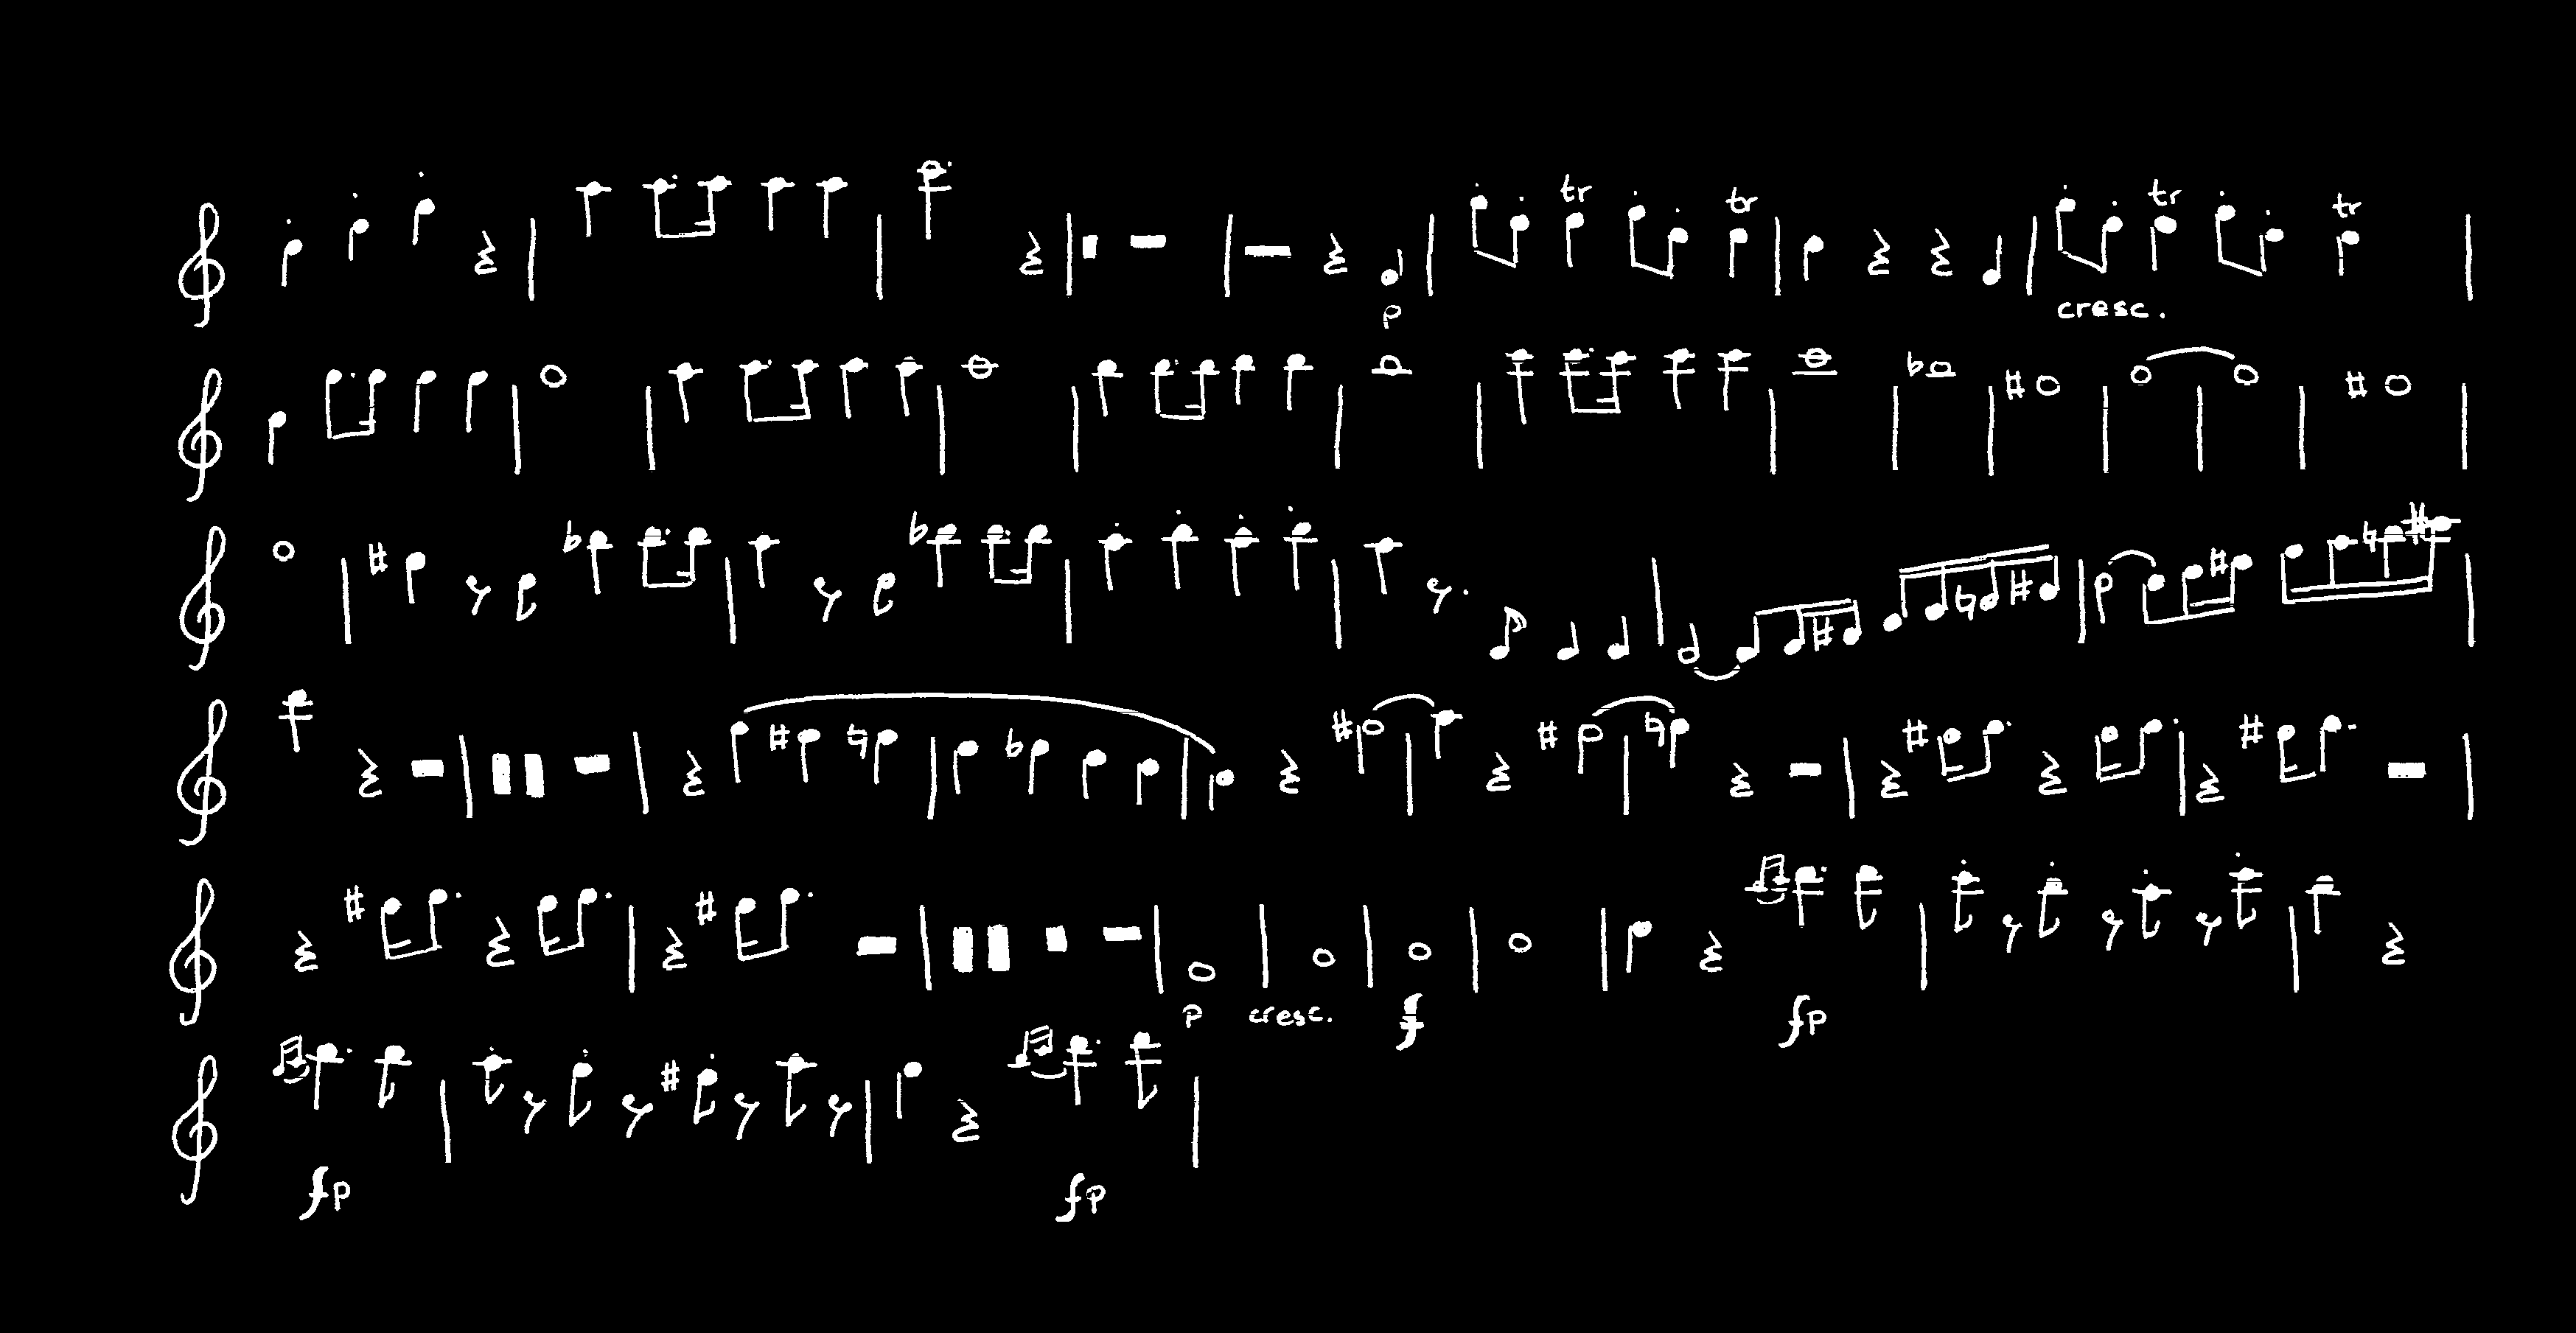 tr tr tr tr
p cresc.
p cresc. f fp
fp fp